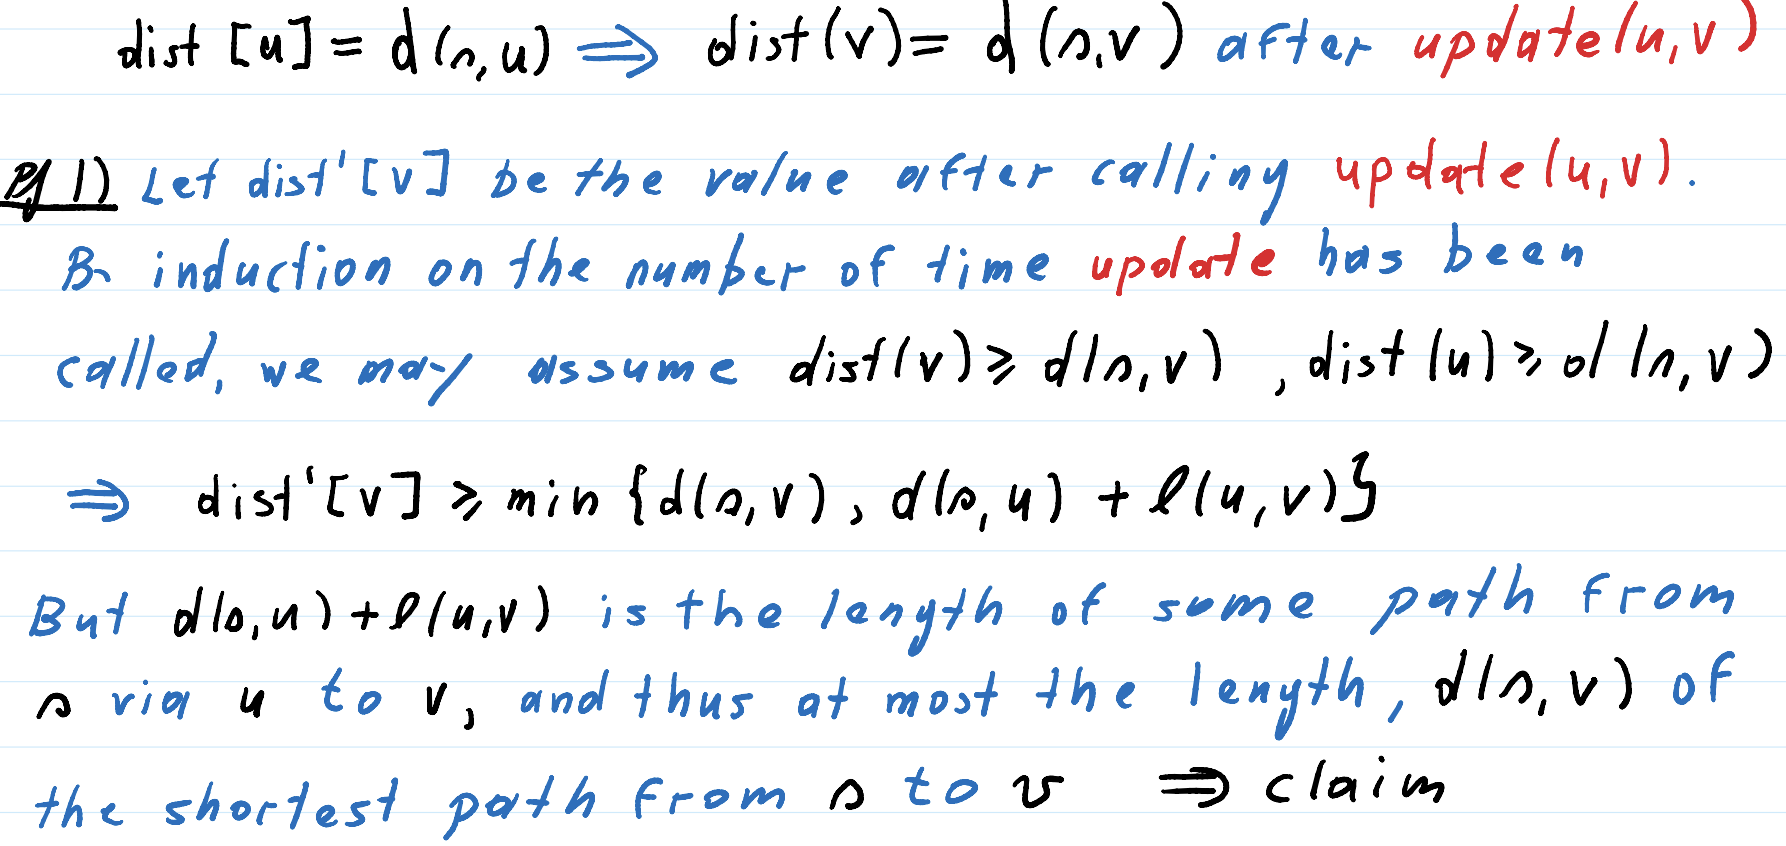 dist [u] = d(s,u) ⇒ dist(v) = d(s,v) after update(u,v)
Pf 1) Let dist'[v] be the value after calling update(u,v).
By induction on the number of time update has been
called, we may assume dist(v) ≥ d(s,v) , dist(u) ≥ d(s,v)
⇒ dist'[v] ≥ min {d(s,v), d(s,u) + ℓ(u,v)}
But d(s,u) + ℓ(u,v) is the length of some path from
s via u to v, and thus at most the length, d(s,v) of
the shortest path from s to v ⇒ claim